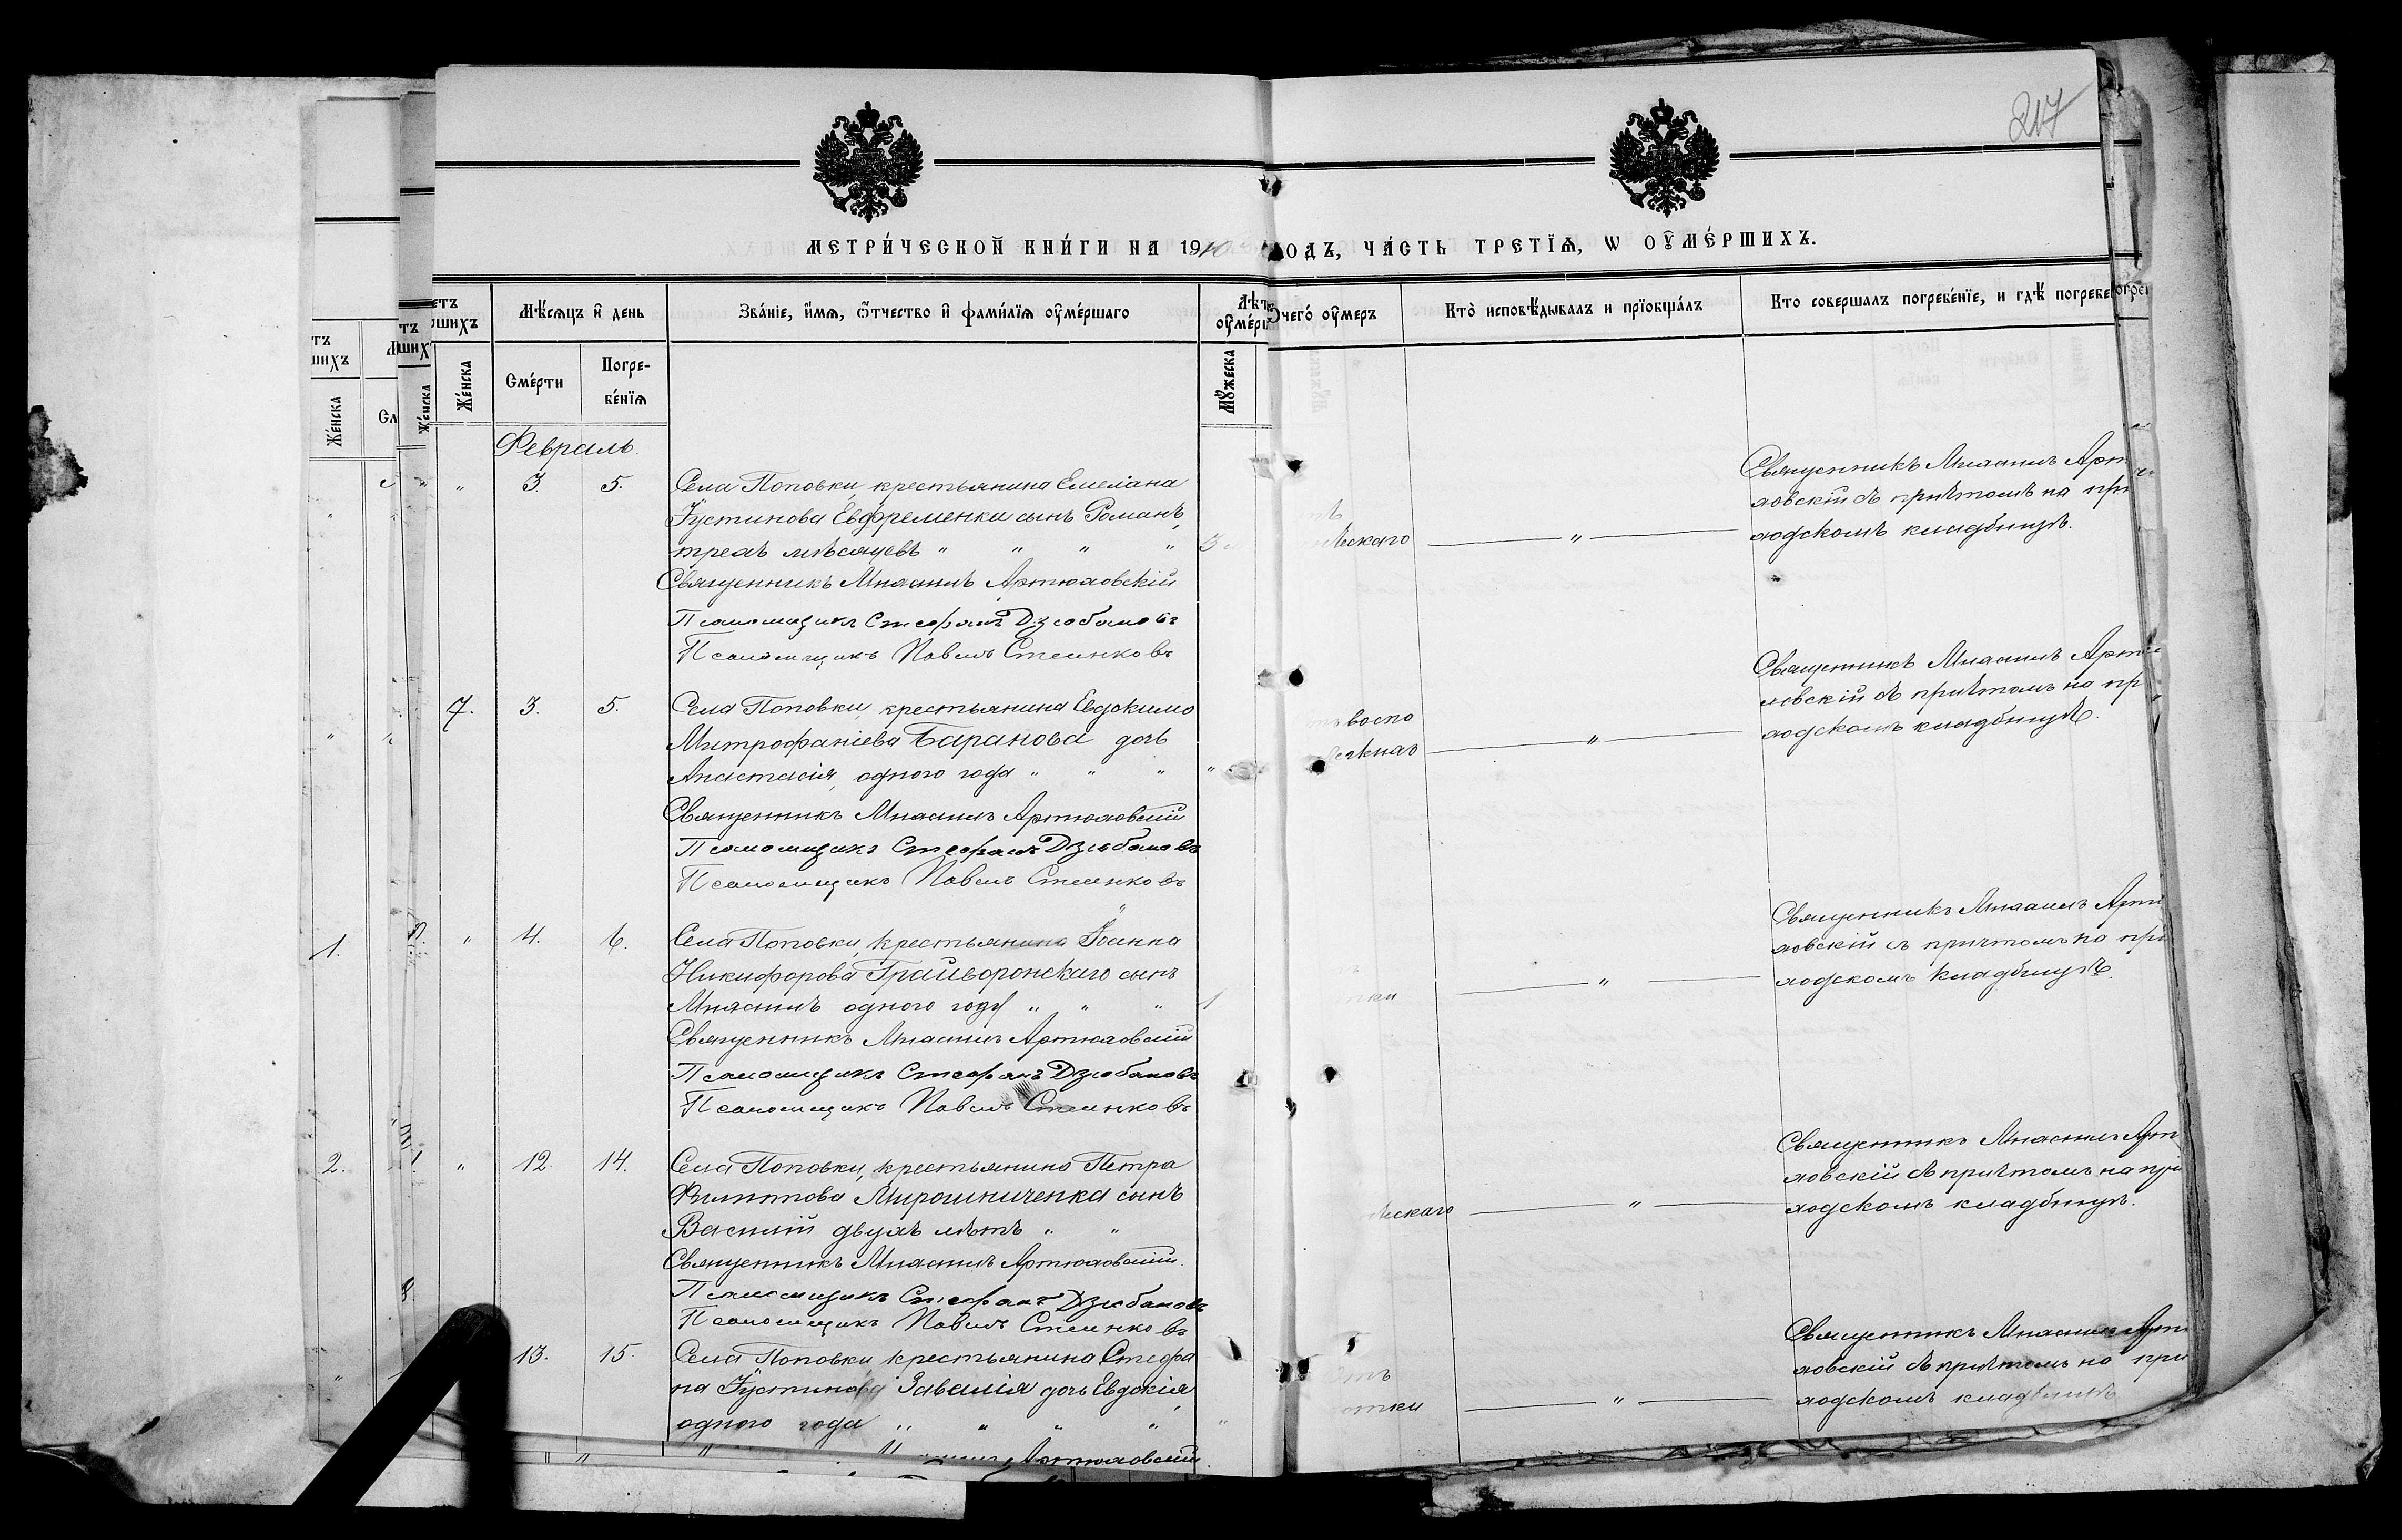 217
МЕТРИ́ЧЕСКОЙ КНИ́ГИ НА 1910 ГОДЪ, ЧА́СТЬ ТРЕТЇѦ, Ѡ ОУ҆МЕ́РШИХЪ.
Мѣ́сѧцъ и҆ день
Зва́нїе, и҆́мѧ, ѻ҆́тчество и҆ фами́лїѧ оу҆ме́ршаго
Лѣт
оу҆ме́рш
Ѿ чегѡ̀ оу҆́меръ
Кто̀ исповѣ́дывалъ и прїобща́лъ
Кто совершалъ погребе́нїе, и гдѣ̀ погребе
етъ
ршихъ
Же́нска
Сме́рти
Погре-
бе́нїѧ
Мꙋ́жеска
Февраль.
" 3. 5. Села Поповки, крестьянина Емеліана
Іустинова Евфременка сынъ Романъ,
трехъ мѣсяцевъ " " " " 3
Священникъ Михаилъ Артюховскій
Псаломщикъ Стефанъ Дзюбановъ
Псаломщикъ Павелъ Стеенковъ
ческаго "
Священникъ Михаилъ Арт
ховскій съ причтомъ на при
ходскомъ кладбищѣ.
7. 3. 5. Села Поповки, крестьянина Евдокима
Митрофаніева Баранова дочь
Анастасія, одного года " " " "
Священникъ Михаилъ Артюховскій
Псаломщикъ Стефанъ Дзюбановъ
Псаломщикъ Павелъ Стеенковъ
воспо
"
Священникъ Михаилъ Артю
ховскій съ причтомъ на пр
ходскомъ кладбищѣ.
1.
" 4. 6. Села Поповки, крестьянина Іоанна
Никифорова Грайворонскаго сынъ
Михаилъ одного года " " " 1
Священникъ Михаилъ Артюховскій
Псаломщикъ Стефанъ Дзюбановъ
Псаломщикъ Павелъ Стеенковъ
"
Священникъ Михаилъ Артю
ховскій съ причтомъ на при
ходскомъ кладбищѣ.
2.
" 12. 14. Села Поповки, крестьянина Петра
Филиппова Мирошниченка сынъ
Василій двухъ лѣтъ " "
Священникъ Михаилъ Артюховскій.
Псаломщикъ Стефанъ Дзюбановъ
Псаломщикъ Павелъ Стеенковъ
ческаго "
Священникъ Михаилъ Арт
ховскій съ причтомъ на при
ходскомъ кладбищѣ.
13. 15. Села Поповки, крестьянина Стефа
на Іустинова Завалія дочь Евдокія,
одного года " " " " "
Артюховскій.
"
Священникъ Михаилъ Арт
ховскій съ причтомъ на при
ходскомъ кладбищѣ